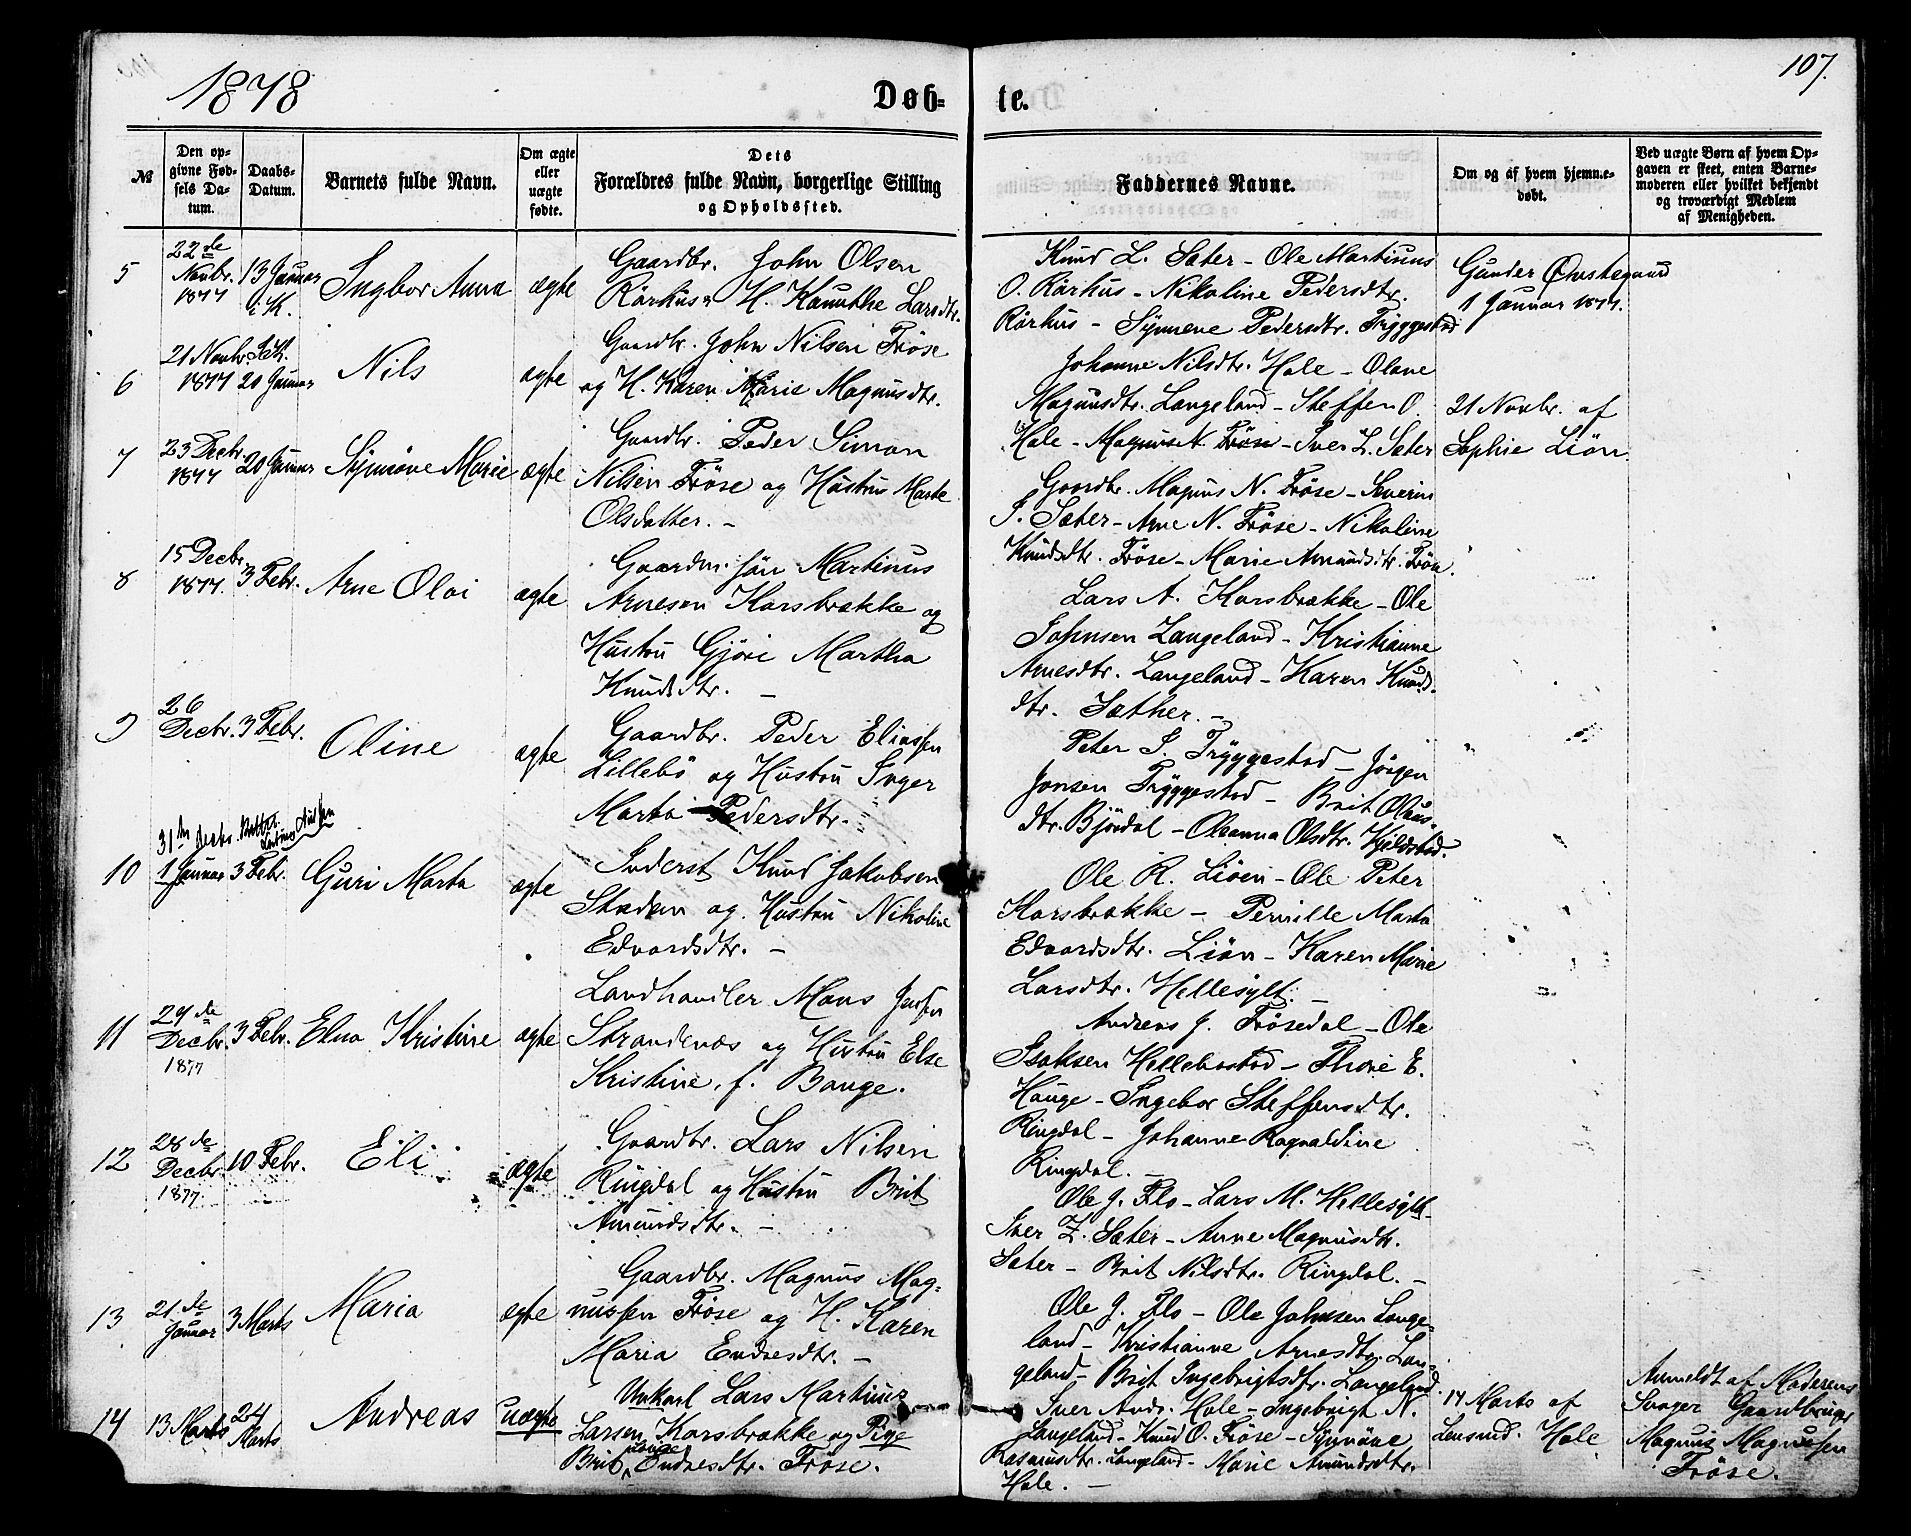 1878
Døb=
te.
107.
№
Den op=
givne Fød=
sels Da=
tum.
Daabs=
Datum.
Barnets fulde Navn.
Om ægte
eller
uægte
fødte.
Dets
Forældres fulde Navn, borgerlige Stilling
og Opholdssted.
Faddernes Navne.
Om og af hvem hjemme=
døbt.
Ved uægte Børn af hvem Op=
gaven er skeet, enten Barne=
moderen eller hvilket bekjendt
og troværdigt Medlem
af Menigheden.
5
22de
Novbr.
1877
13 Januar
i K.
Ingbor Anna
ægte
Gaardbr. John Olsen
Rörhus H. Kanutke Larsdtr.
Knud L. Sæter - Ole Martinus
O. Rörhus - Nikoline Pedersdtr.
Rörhus - Synnene Pedersdtr. Tryggestad
Gunder
1 Januar 1877.
6
21 Novbr.
1877
20 Januar
Nils
ægte
Gaardbr. John Nilsen Fröse
og H. Karen Marie Magnusdtr.
Johanne Nilsdtr. Hole - Olave
Magnusdtr. Langeland - Steffen O.
Hole - Magnus N. Fröse - Iver L. Sæter
21 Novbr. af
Sophie Liön.
7
23 Decbr.
1877
20 Januar
Synnöve Marie
ægte
Gaardbr. Peder Simon
Nilsen Fröse og Hustru Marte
Olsdatter. -
Gaardbr. Magnus N. Fröse - Severin
I. Sæter - Arne N. Fröse - Nikoline
Knudsdtr. Fröse - Marie Amundsdtr. Fröse.
8
15 Decbr.
1877.
3 Febr.
Arne Olai
ægte
Gaardm. Jön Martinus
Arnesen Korsbrække og
Hustru Gjöri Martha
Knudsdtr. -
Lars A. Korsbrække - Ole
Johnsen Langeland - Kristianne
Arnesdtr. Langeland - Karen Knuds-
dtr. Sæther. -
9
26
Decbr.
3 Febr.
Oline
ægte
Gaardbr. Peder Eliassen
Lillebö og Hustru Inger
Marta Pedersdtr. -
Peter S. Tryggestad - Jörgen
Jonsen Tryggestad - Brit Olaus-
dtr. Björdal - Oleanna Olsdtr. Kjeldstad.
10
31te Decbr.
1 Januar
3 Febr.
Guri Marta
ægte
Inderst Knud Jakobsen
Staden og Hustru Nikoline
Edvardsdtr. -
Ole R. Liöen - Ole Peter
Korsbrække - Pernille Marta
Edvardsdtr. Liön - Karen Marie
Larsdtr. Hellesylt. -
11
29de
Decbr.
1877
3 Febr.
Elna Kristine
ægte
Landhandler Mons Jensen
Strandenæs og Hustru Else
Kristine, f. Bauge.
Andreas J. Frösedal - Ole
Isaksen Hellebostad - Thore E.
Hauge - Ingebor Steffensdtr.
Ringdal - Johanne Ragnaldine
Ringdal. -
12
28de
Decbr.
1877.
10 Febr.
Eli
ægte
Gaardbr. Lars Nilsen
Ringdal og Hustru Brit
Amundsdtr. -
Ole J. Flo - Lars M. Hellesylt -
Iver L. Sæter - Anne Magnusdtr.
Sæter - Brit Nilsdtr. Ringdal. -
13
21de
Januar
3 Marts
Maria
ægte
Gaardbr. Magnus Mag-
nussen Fröse og H. Karen
Maria Endresdtr. -
Ole J. Flo - Ole Johnsen Lange-
land - Kristianne Arnesdtr. Lan-
geland - Brit Ingebrigtsdtr. Langeland.
14
13 Marts
24
Marts
Andreas
uægte
Unkarl Lars Martinus
Larsen Korsbrække og Pige
Brit Endresdtr. Fröse.
Iver Ands. Hole - Ingebrigt N.
Langeland - Knud O. Fröse - Synnöve
Rasmusdtr. Langeland - Marie Amundsdtr.
Hole. -
14 Marts af
Lensmd. Hole
Anmeldt af Moderens
Svoger Gaardbruger
Magnus Magnussen
Fröse.